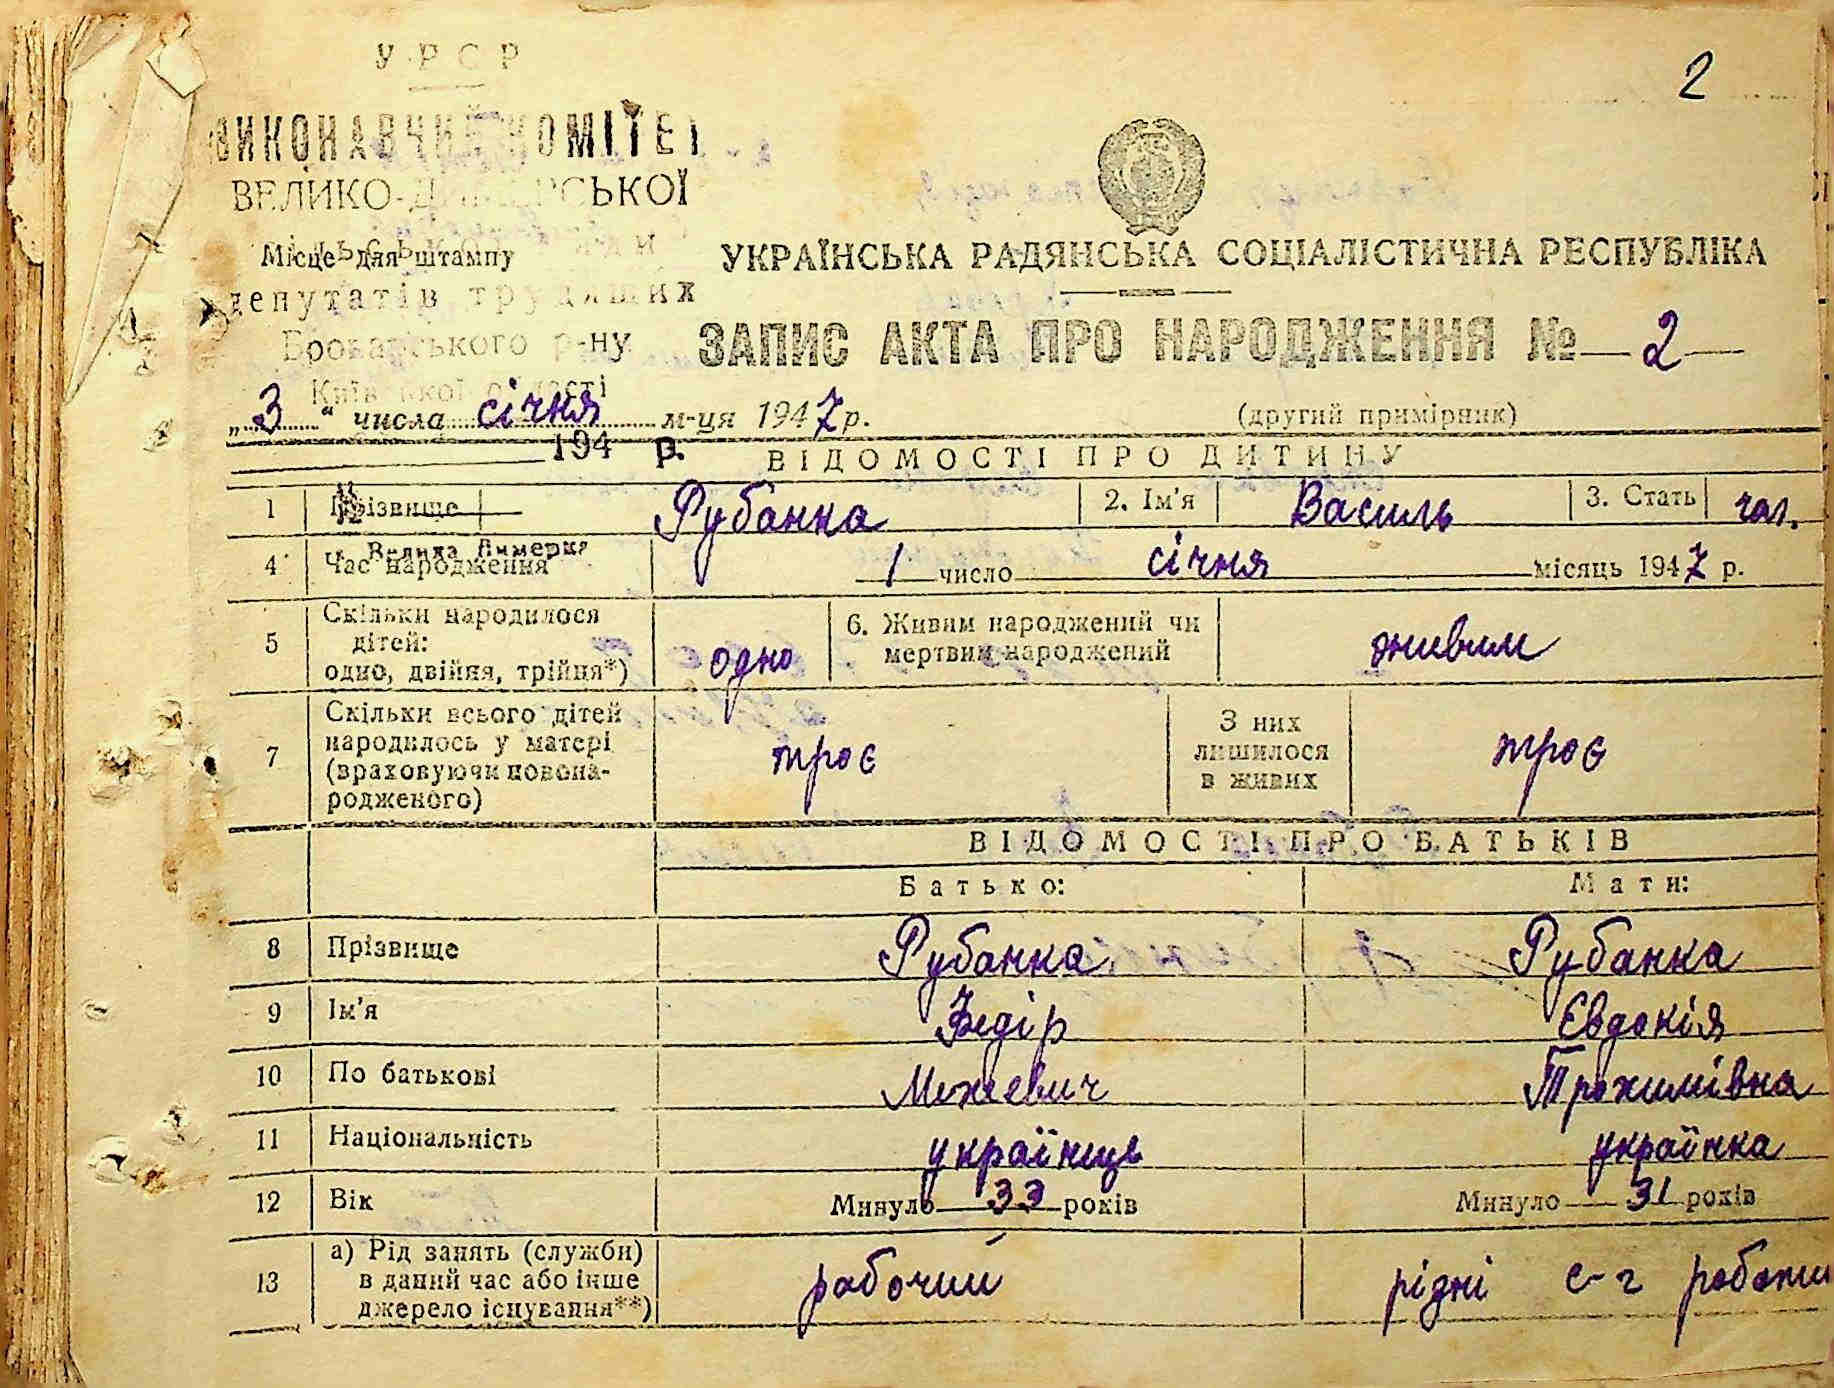 2
УРСР
ВИКОНАВЧИЙ КОМІТЕТ
ВЕЛИКО-ДИМЕРСЬКОЇ
Місце для штампу
депутатів трудящих
Броварського р-ну
Київської області
194 р.
с. Велика Димерка
УКРАЇНСЬКА РАДЯНСЬКА СОЦІАЛІСТИЧНА РЕСПУБЛІКА
ЗАПИС АКТА ПРО НАРОДЖЕННЯ № 2
„3“ числа січня м-ця 1947 р. (другий примірник)
ВІДОМОСТІ ПРО ДИТИНУ
1 Прізвище Рубанка 2. Ім'я Василь 3. Стать чол.
4 Час народження 1 число січня місяць 1947 р.
5 Скільки народилося дітей: одно, двійня, трійня*) одно 6. Живим народжений чи мертвим народжений живим
7 Скільки всього дітей народилось у матері (враховуючи новонародженого) троє З них лишилося в живих троє
ВІДОМОСТІ ПРО БАТЬКІВ
Батько: Мати:
8 Прізвище Рубанка Рубанка
9 Ім'я Федір Євдокія
10 По батькові Трохимівна
11 Національність українець українка
12 Вік Минуло 33 років Минуло 31 років
13 а) Рід занять (служби) в даний час або інше джерело існування**) рабочий різні с-г роботи